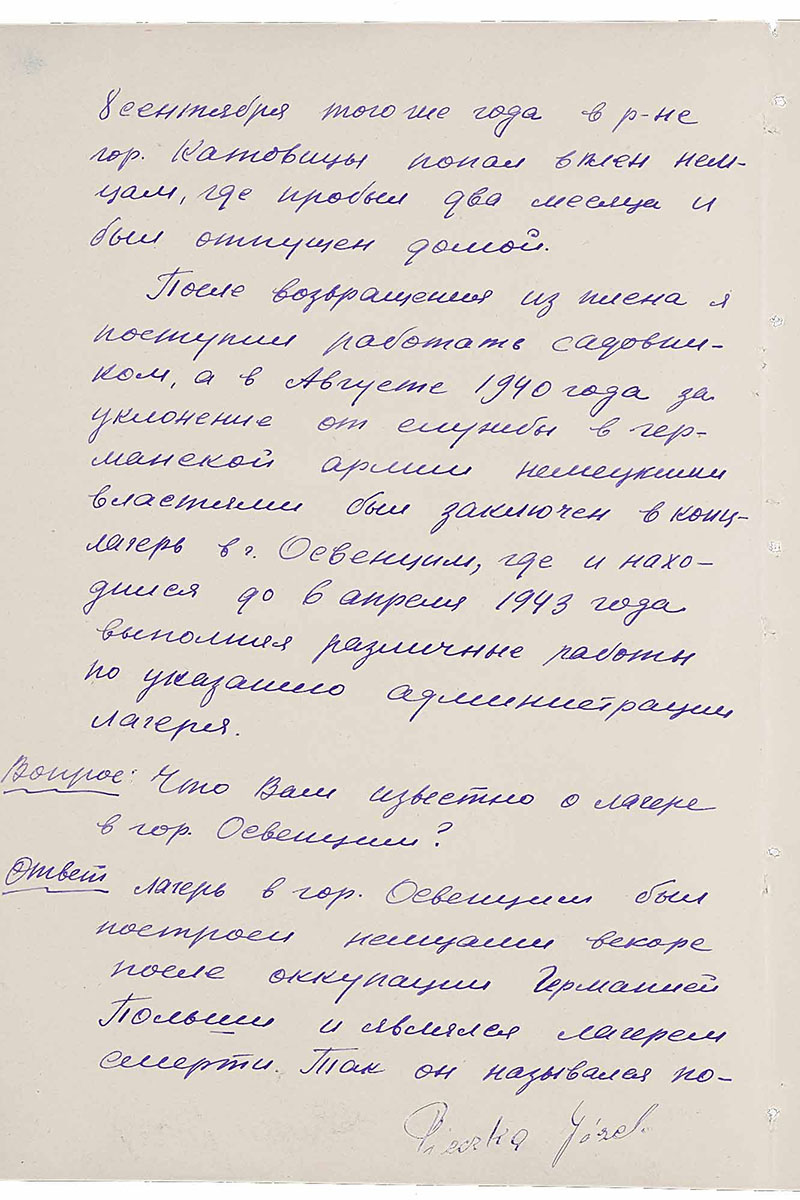 8 сентября того же года в р-не
гор. Катовицы попал в плен нем-
цам, где пробыл два месяца и
был отпущен домой.
После возвращения из плена я
поступил работать садовни-
ком, а в Августе 1940 года за
уклонение от службы в гер-
манской армии немецкими
властями был заключен в конц-
лагерь в г. Освенцим, где и нахо-
дился до 6 апреля 1943 года
выполняя различные работы
по указанию администрации
лагеря.
Вопрос: Что Вам известно о лагере
в гор. Освенцим?
Ответ Лагерь в гор. Освенцим был
построен немцами вскоре
после оккупации Германией
Польши и являлся лагерем
смерти. Так он назывался по-
Pieczka Józef